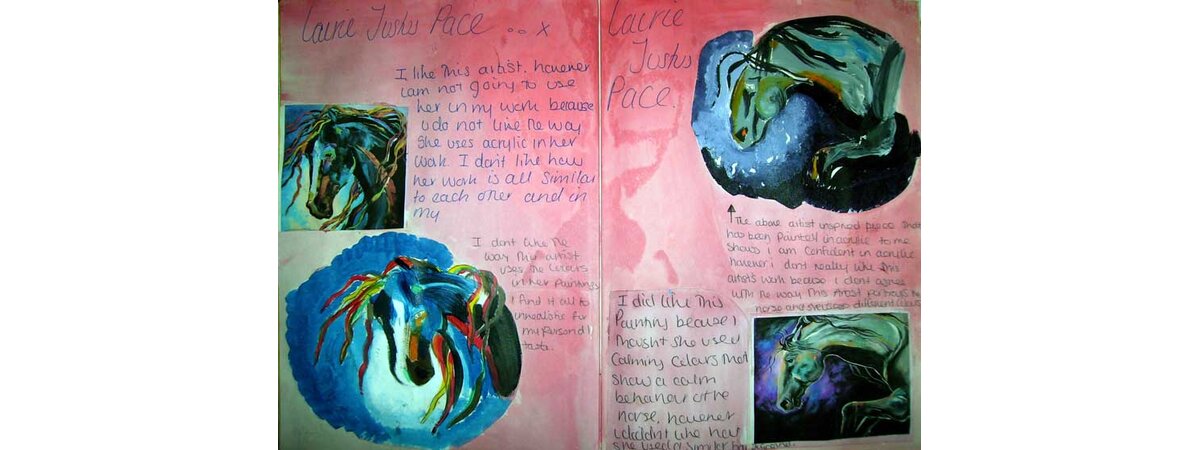 Laurie Justus Pace ... x
I like this artist. however
I am not going to use
her in my work because
I do not like the way
she uses acrylic in her
work. I don't like how
her work is all similar
to each other and in
my
I dont like the
way this artist
uses the colours
in her paintings
I find it all to
unrealistic for
my personal
taste.
Laurie
Justus
Pace.
The above artist inspired piece that
has been painted in acrylic to me
shows I am confident in acrylic
however I dont really like this
artists work because I dont agree
with the way this artist portrays the
horse and different
I did like this
Painting because I
thought she used
calming colours that
show a calm
behaviour of the
horse, however
I didn't like how
she used a similar